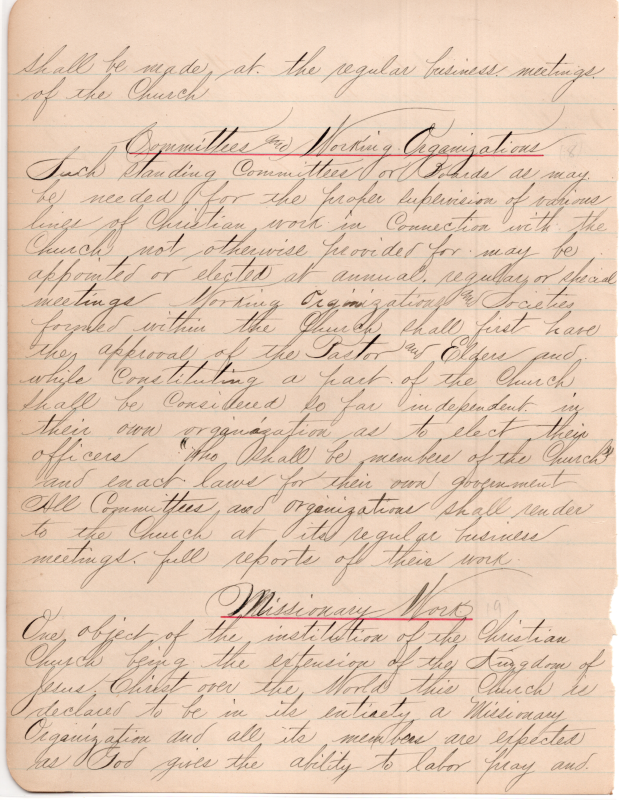 shall be made, at. the regular business. meetings.
of the Church
Committees and Working Organizations
Such Standing Committees or Boards as may.
be needed, for the proper supervision of various
lines of Christian work in Connection with the
Church, not otherwise provided for may be
appointed or elected at annual. regular, or special
meetings Working Organizations and Societies
formed within the Church shall first have
the approval of the Pastor and Elders and.
while Constituting a part of the Church
shall be Considered so far independent in
their own organization as to elect their
officers "who shall be members of the Church"
and enact laws for their own government
All Committees and organizations shall render
to the Church at its regular business
meetings. full reports of their work.
Missionary Work 19
One object of the institution of the Christian
Church being the extension of the Kingdom of
Jesus Christ over the World this Church is
declared to be in its entirety a Missionary
Organization and all its members are expected
as God gives the ability to labor pray and